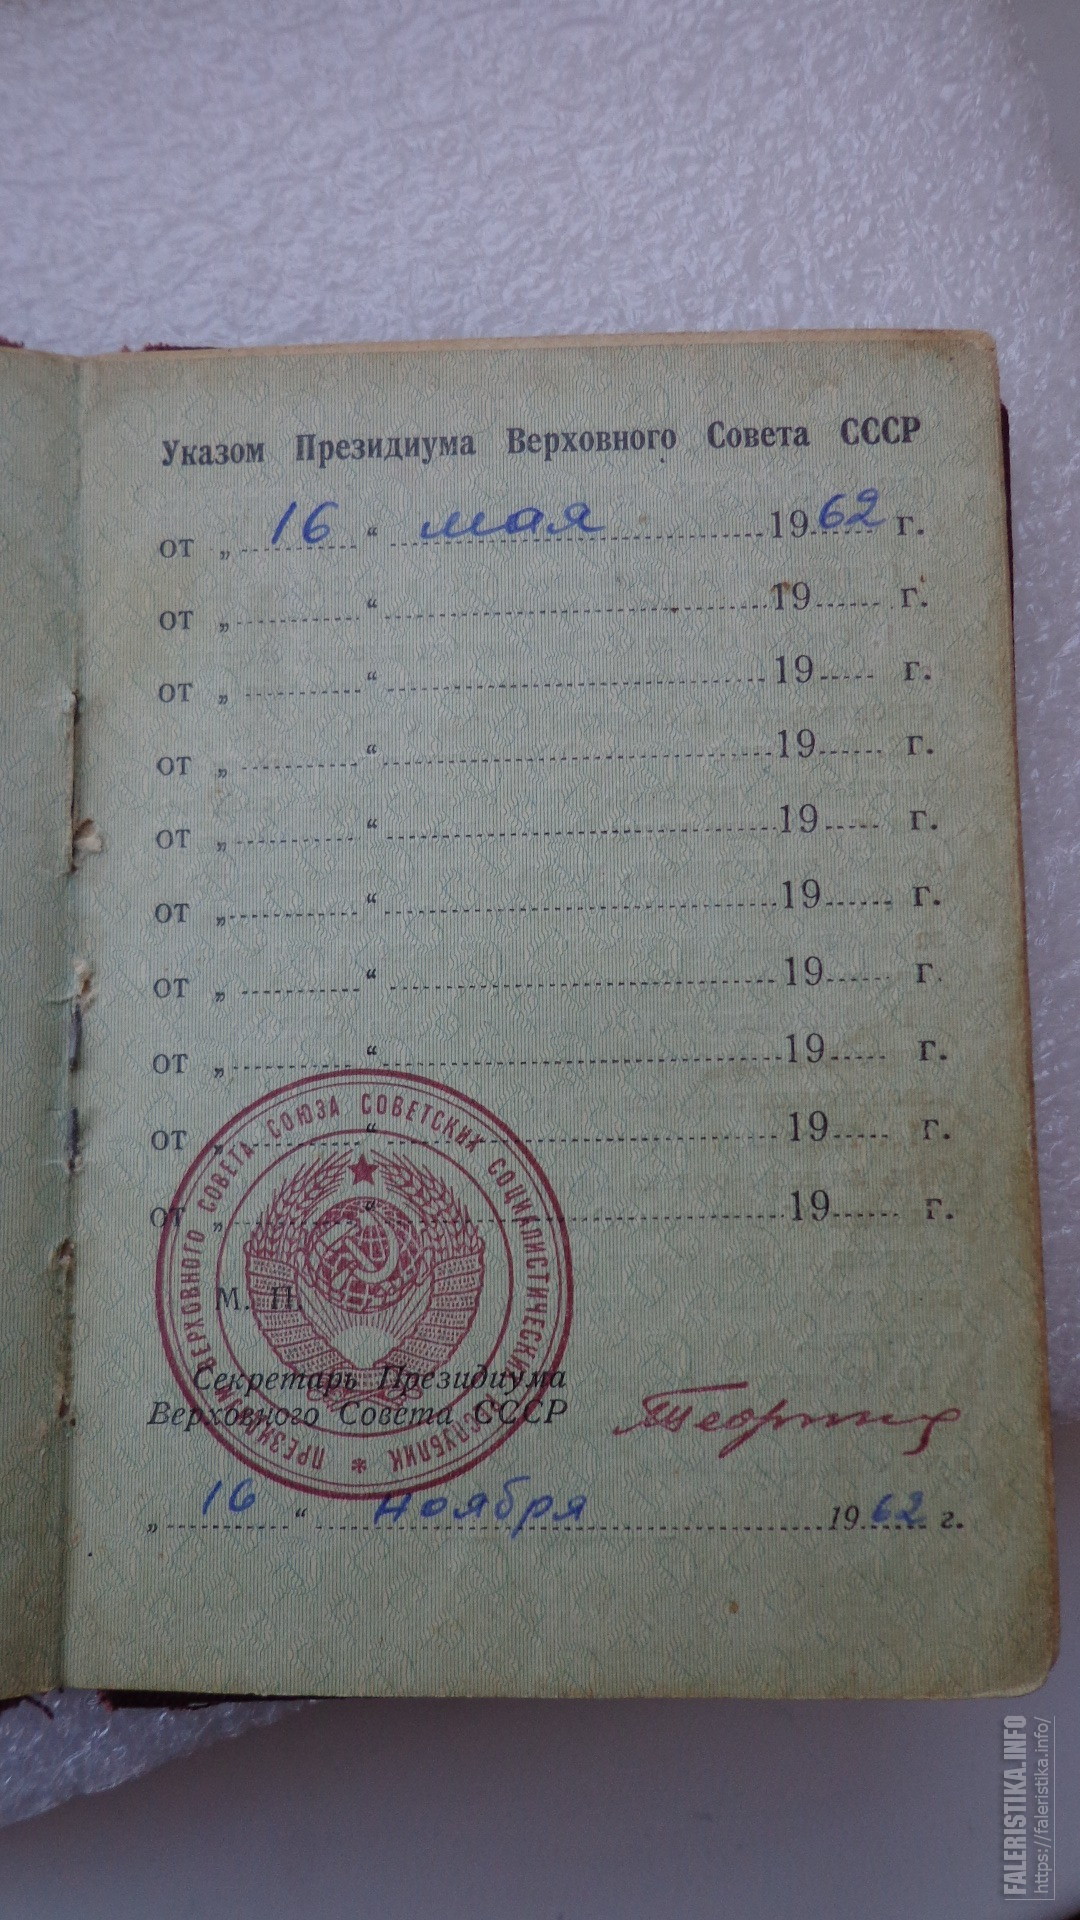 Указом Президиума Верховного Совета СССР
от „ 16 “ мая 1962 г.
от „ “ 19 г.
от „ “ 19 г.
от „ “ 19 г.
от „ “ 19 г.
от „ “ 19 г.
от „ “ 19 г.
от „ “ 19 г.
от „ “ 19 г.
от „ “ 19 г.
М. П.
ПРЕЗИДИУМ ВЕРХОВНОГО СОВЕТА СОЮЗА СОВЕТСКИХ СОЦИАЛИСТИЧЕСКИХ РЕСПУБЛИК *
Секретарь Президиума
Верховного Совета СССР
„ 16 “ ноября 1962 г.
FALERISTIKA.INFO
https://faleristika.info/